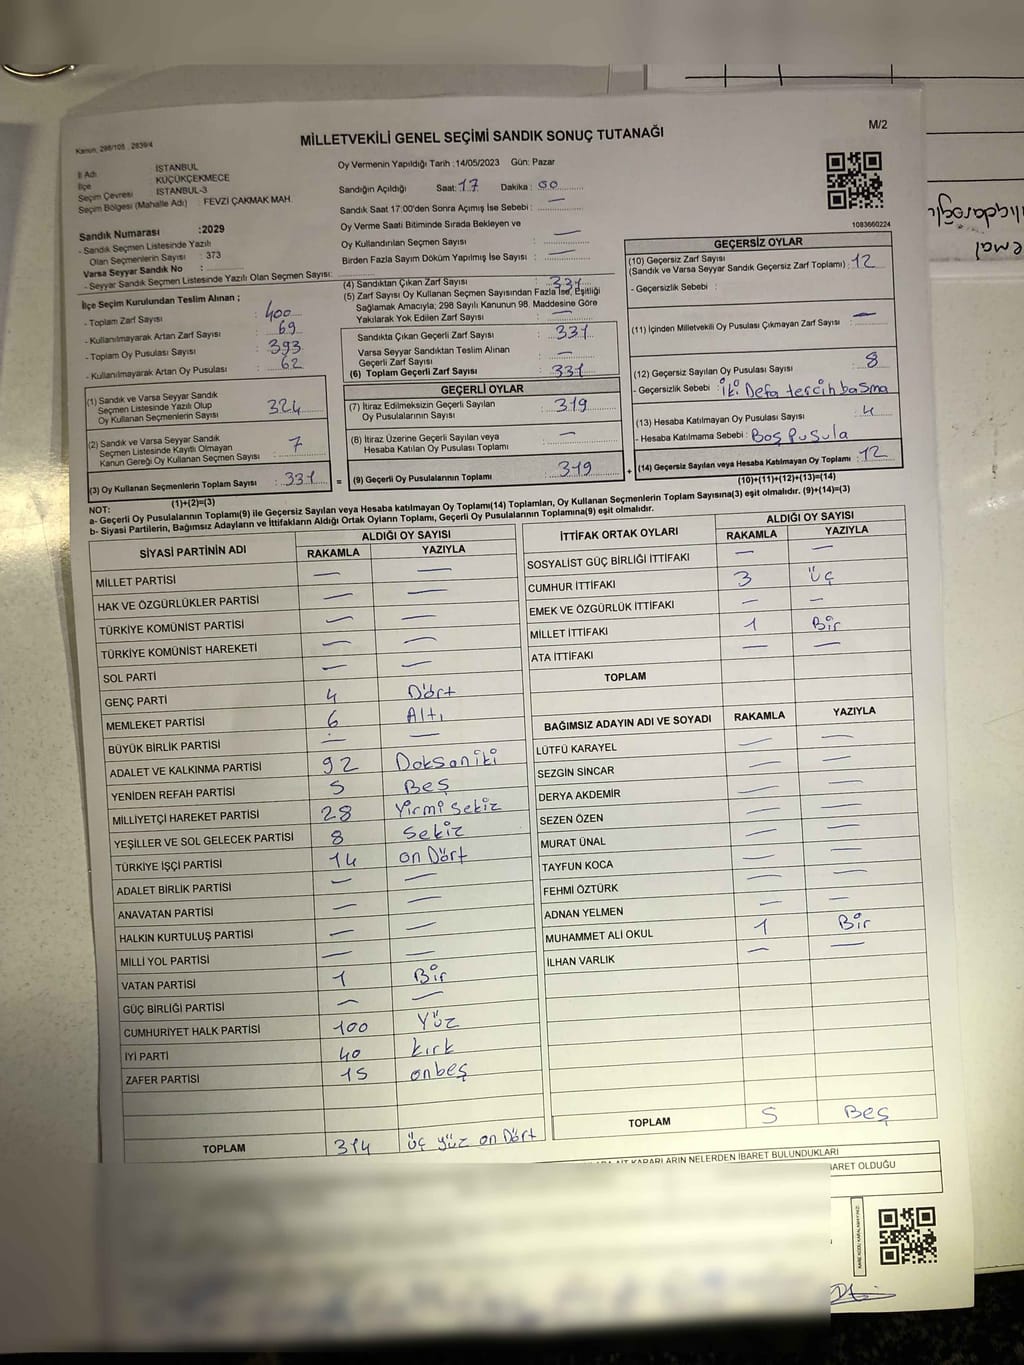 M/2
Kanun, 298/105 , 2839/4
MİLLETVEKİLİ GENEL SEÇİMİ SANDIK SONUÇ TUTANAĞI
İl Adı : İSTANBUL
İlçe : KÜÇÜKÇEKMECE
Seçim Çevresi : İSTANBUL-3
Seçim Bölgesi (Mahalle Adı) : FEVZİ ÇAKMAK MAH.
Sandık Numarası :2029
- Sandık Seçmen Listesinde Yazılı
Olan Seçmenlerin Sayısı : 373
Varsa Seyyar Sandık No :
- Seyyar Sandık Seçmen Listesinde Yazılı Olan Seçmen Sayısı:
İlçe Seçim Kurulundan Teslim Alınan ;
- Toplam Zarf Sayısı : 400
- Kullanılmayarak Artan Zarf Sayısı : 69
- Toplam Oy Pusulası Sayısı : 393
- Kullanılmayarak Artan Oy Pusulası : 62
(1) Sandık ve Varsa Seyyar Sandık
Seçmen Listesinde Yazılı Olup
Oy Kullanan Seçmenlerin Sayısı : 324
(2) Sandık ve Varsa Seyyar Sandık
Seçmen Listesinde Kayıtlı Olmayan
Kanun Gereği Oy Kullanan Seçmen Sayısı : 7
(3) Oy Kullanan Seçmenlerin Toplam Sayısı : 331
(1)+(2)=(3)
Oy Vermenin Yapıldığı Tarih : 14/05/2023 Gün: Pazar
Sandığın Açıldığı Saat: 17 Dakika : 00
Sandık Saat 17:00'den Sonra Açımış İse Sebebi : —
Oy Verme Saati Bitiminde Sırada Bekleyen ve
Oy Kullandırılan Seçmen Sayısı : —
Birden Fazla Sayım Döküm Yapılmış İse Sayısı : —
(4) Sandıktan Çıkan Zarf Sayısı : 331
(5) Zarf Sayısı Oy Kullanan Seçmen Sayısından Fazla İse, Eşitliği
Sağlamak Amacıyla; 298 Sayılı Kanunun 98. Maddesine Göre
Yakılarak Yok Edilen Zarf Sayısı : —
Sandıkta Çıkan Geçerli Zarf Sayısı : 331
Varsa Seyyar Sandıktan Teslim Alınan
Geçerli Zarf Sayısı : —
(6) Toplam Geçerli Zarf Sayısı : 331
GEÇERLİ OYLAR
(7) İtiraz Edilmeksizin Geçerli Sayılan
Oy Pusulalarının Sayısı : 319
(8) İtiraz Üzerine Geçerli Sayılan veya
Hesaba Katılan Oy Pusulası Toplamı : —
= (9) Geçerli Oy Pusulalarının Toplamı : 319 +
1093660224
GEÇERSİZ OYLAR
(10) Geçersiz Zarf Sayısı
(Sandık ve Varsa Seyyar Sandık Geçersiz Zarf Toplamı) : 12
- Geçersizlik Sebebi :
(11) İçinden Milletvekili Oy Pusulası Çıkmayan Zarf Sayısı : —
(12) Geçersiz Sayılan Oy Pusulası Sayısı : 8
- Geçersizlik Sebebi : İki Defa tercih basma
(13) Hesaba Katılmayan Oy Pusulası Sayısı : 4
- Hesaba Katılmama Sebebi : Boş Pusula
(14) Geçersiz Sayılan veya Hesaba Katılmayan Oy Toplamı : 12
(10)+(11)+(12)+(13)=(14)
NOT:
a- Geçerli Oy Pusulalarının Toplamı(9) ile Geçersiz Sayılan veya Hesaba katılmayan Oy Toplamı(14) Toplamları, Oy Kullanan Seçmenlerin Toplam Sayısına(3) eşit olmalıdır. (9)+(14)=(3)
b- Siyasi Partilerin, Bağımsız Adayların ve İttifakların Aldığı Ortak Oyların Toplamı, Geçerli Oy Pusulalarının Toplamına(9) eşit olmalıdır.
SİYASİ PARTİNİN ADI ALDIĞI OY SAYISI
RAKAMLA YAZIYLA
MİLLET PARTİSİ — —
HAK VE ÖZGÜRLÜKLER PARTİSİ — —
TÜRKİYE KOMÜNİST PARTİSİ — —
TÜRKİYE KOMÜNİST HAREKETİ — —
SOL PARTİ — —
GENÇ PARTİ 4 Dört
MEMLEKET PARTİSİ 6 Altı
BÜYÜK BİRLİK PARTİSİ — —
ADALET VE KALKINMA PARTİSİ 92 Doksan iki
YENİDEN REFAH PARTİSİ 5 Beş
MİLLİYETÇİ HAREKET PARTİSİ 28 Yirmi sekiz
YEŞİLLER VE SOL GELECEK PARTİSİ 8 Sekiz
TÜRKİYE İŞÇİ PARTİSİ 14 on Dört
ADALET BİRLİK PARTİSİ — —
ANAVATAN PARTİSİ — —
HALKIN KURTULUŞ PARTİSİ — —
MİLLİ YOL PARTİSİ — —
VATAN PARTİSİ 1 Bir
GÜÇ BİRLİĞİ PARTİSİ — —
CUMHURİYET HALK PARTİSİ 100 Yüz
İYİ PARTİ 40 kırk
ZAFER PARTİSİ 15 onbeş
TOPLAM 314 üç yüz on Dört
İTTİFAK ORTAK OYLARI ALDIĞI OY SAYISI
RAKAMLA YAZIYLA
SOSYALİST GÜÇ BİRLİĞİ İTTİFAKI — —
CUMHUR İTTİFAKI 3 üç
EMEK VE ÖZGÜRLÜK İTTİFAKI — —
MİLLET İTTİFAKI 1 Bir
ATA İTTİFAKI — —
TOPLAM
BAĞIMSIZ ADAYIN ADI VE SOYADI RAKAMLA YAZIYLA
LÜTFÜ KARAYEL — —
SEZGİN SİNCAR — —
DERYA AKDEMİR — —
SEZEN ÖZEN — —
MURAT ÜNAL — —
TAYFUN KOCA — —
FEHMİ ÖZTÜRK — —
ADNAN YELMEN — —
MUHAMMET ALİ OKUL 1 Bir
İLHAN VARLIK — —
TOPLAM 5 Beş
KARARLARIN NELERDEN İBARET BULUNDUKLARI
BARET OLDUĞU